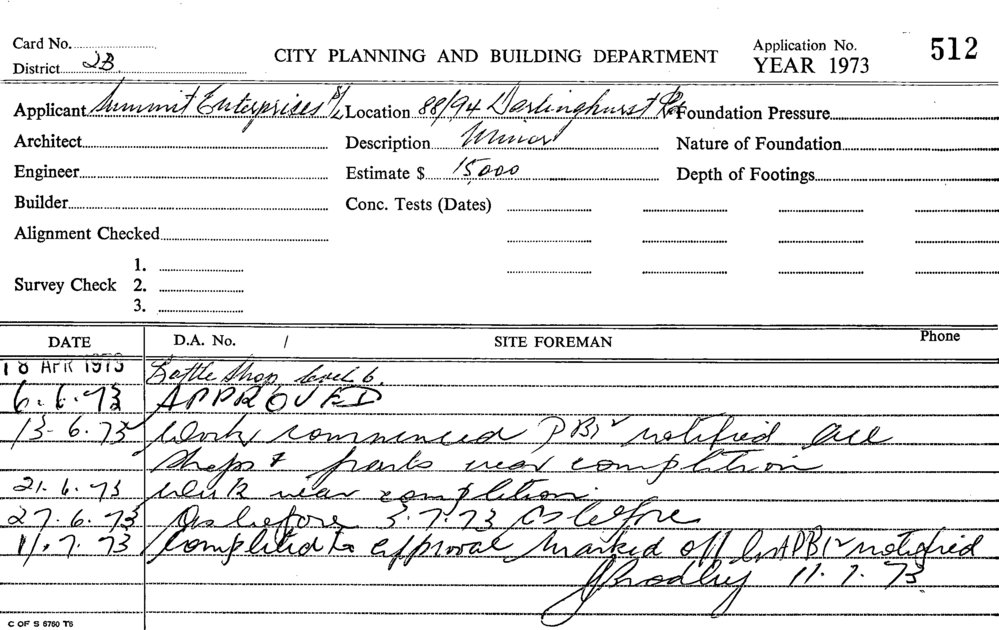 Card No.
District 2B
CITY PLANNING AND BUILDING DEPARTMENT
Application No.
YEAR 1973
512
Applicant Summit Enterprises P/L Location 88/94 Darlinghurst Rd Foundation Pressure
Architect Description Minor Nature of Foundation
Engineer Estimate $ 15,000 Depth of Footings
Builder Conc. Tests (Dates)
Alignment Checked
1.
Survey Check 2.
3.
DATE D.A. No. / SITE FOREMAN Phone
18 APR 1973 Bottle Shop level 6.
6.6.73 APPROVED
13-6.73 Work commenced notified all
shops & fronts near completion
21.6.73 Work near completion.
27.6.73 As before 3.7.73 as before
11.7.73 Completed to approval marked off notified
J Bradley 11.7.73
C OF S 6760 T6